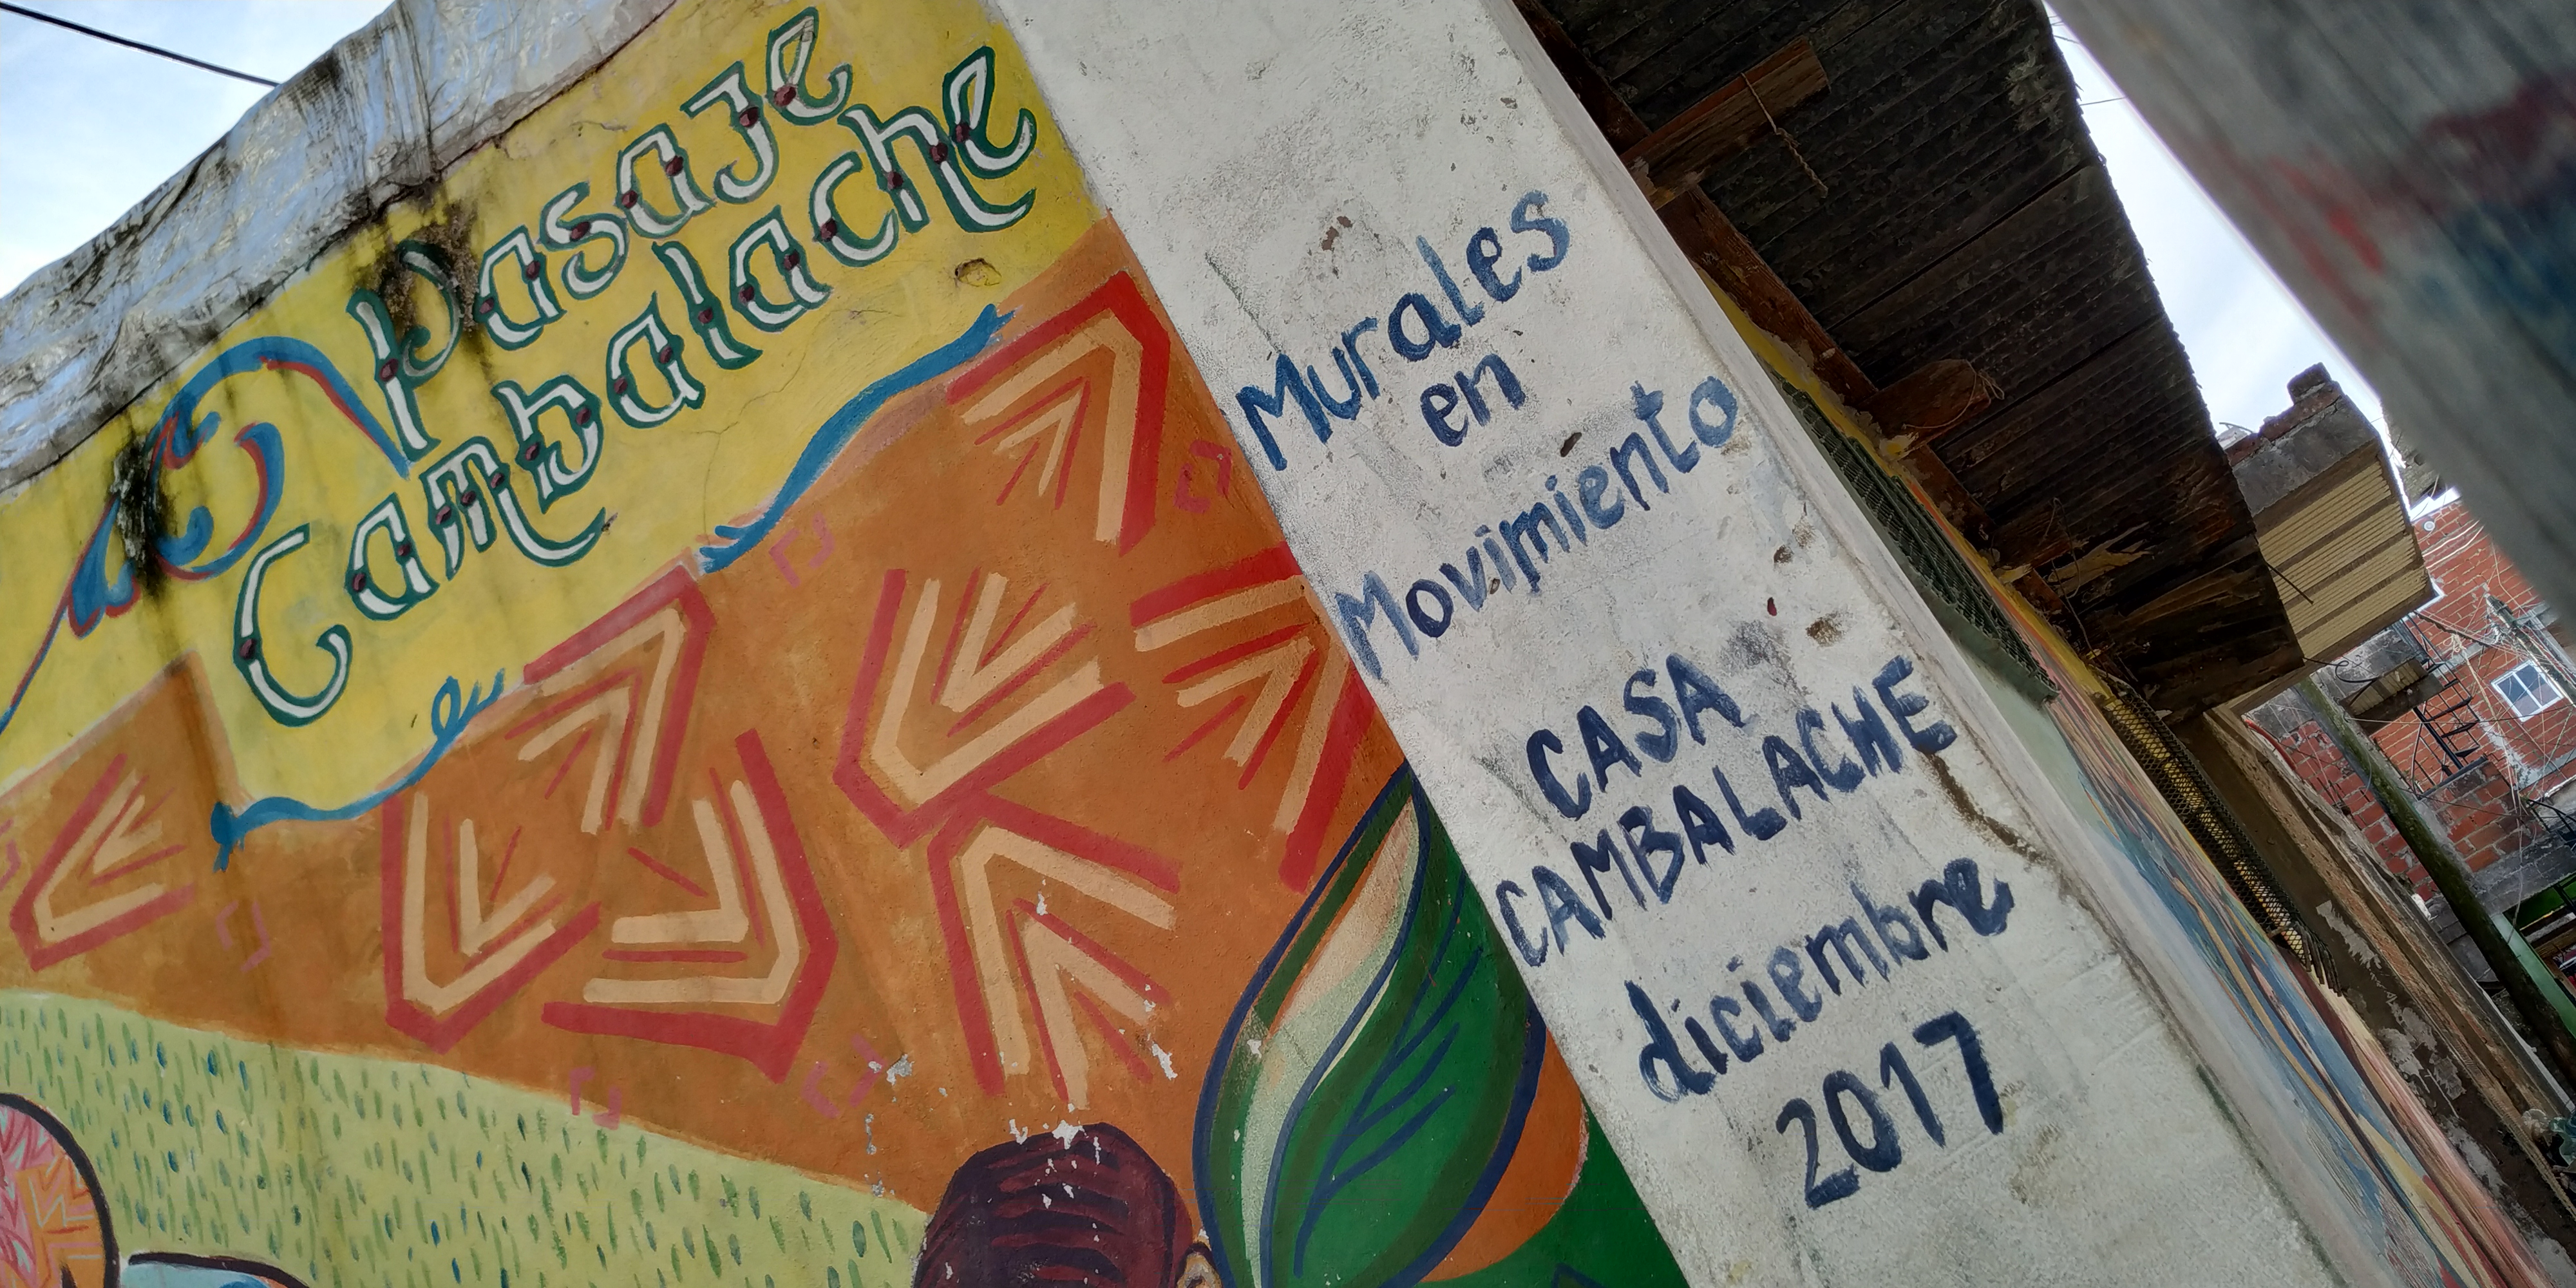 Pasaje
Cambalache
Murales
en
Movimiento
CASA
CAMBALACHE
diciembre
2017